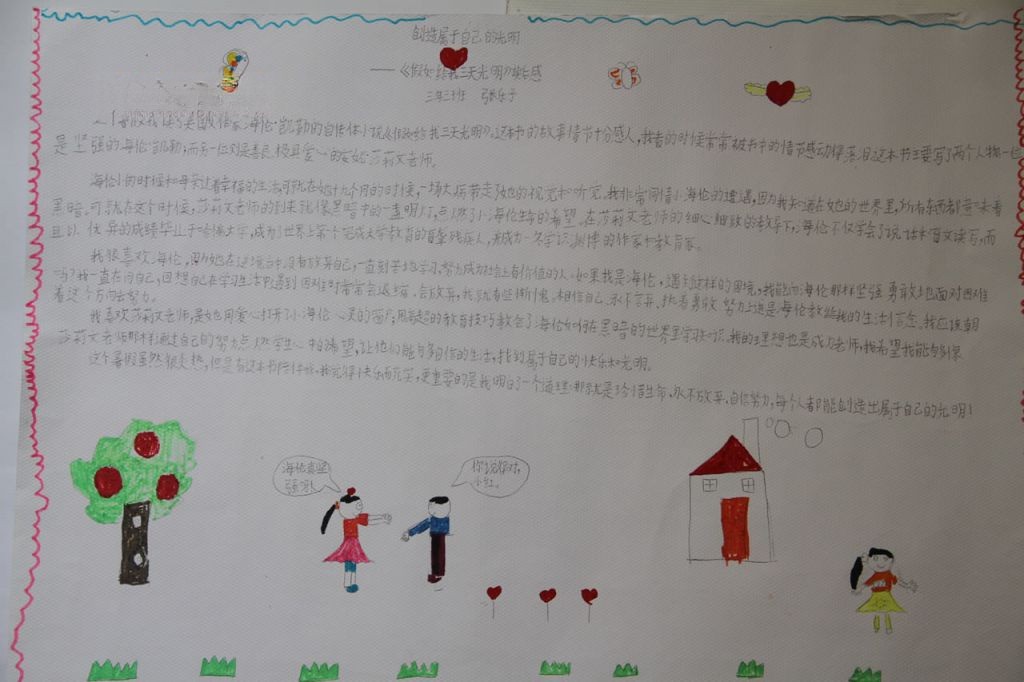 创造属于自己的光明
——《假如给我三天光明》读后感
三年三班 张乐子
暑假我读了美国女作家海伦·凯勒的自传体小说《假如给我三天光明》。这本书的故事情节十分感人,我看的时候常常被书中的情节感动得落泪。这本书主要写了两个人物:一位
是坚强的海伦·凯勒,而另一位则是善良、极具爱心的安妮·莎莉文老师。
海伦小的时候和母亲过着幸福的生活,可就在她十九个月的时候,一场大病带走了她的视觉和听觉。我非常同情小海伦的遭遇,因为我知道在她的世界里,所有东西都意味着
黑暗。可就在这个时候,莎莉文老师的到来就像黑暗中的一盏明灯,点燃了小海伦生命的希望。在莎莉文老师的细心细致的教导下,海伦不仅学会了说话和盲文读写,而
且以优异的成绩毕业于哈佛大学,成为了世界上第一个完成大学教育的盲聋残疾人,并成为一名学识渊博的作家和教育家。
我很喜欢海伦,因为她在逆境当中没有放弃自己,一直刻苦地学习,努力成为社会上有价值的人。如果我是海伦,遇到这样的困境,我能向海伦那样坚强勇敢地面对困难
吗?我一直在问自己,回想自己在学习生活中遇到困难时常常会退缩、会放弃,我就有些惭愧。相信自己、永不言弃、执着勇敢、努力上进是海伦教给我的生活信念。我应该朝
着这个方向去努力。
我喜欢莎莉文老师,是她用爱心打开了小海伦心灵的窗户,用的教育技巧教会了海伦如何在黑暗的世界里学习知识。我的理想也是成为老师,我希望我能够像
莎莉文老师那样通过自己的努力点燃学生心中的希望,让他们能够自信的生活,找到属于自己的快乐和光明。
这个暑假虽然很炎热,但是有这本书陪伴我,我觉得快乐而充实,更重要的是我明白了一个道理:那就是珍惜生命、永不放弃、自信努力,每个人都能创造出属于自己的光明!
海伦真坚
强啊!
你说得对,
小红。